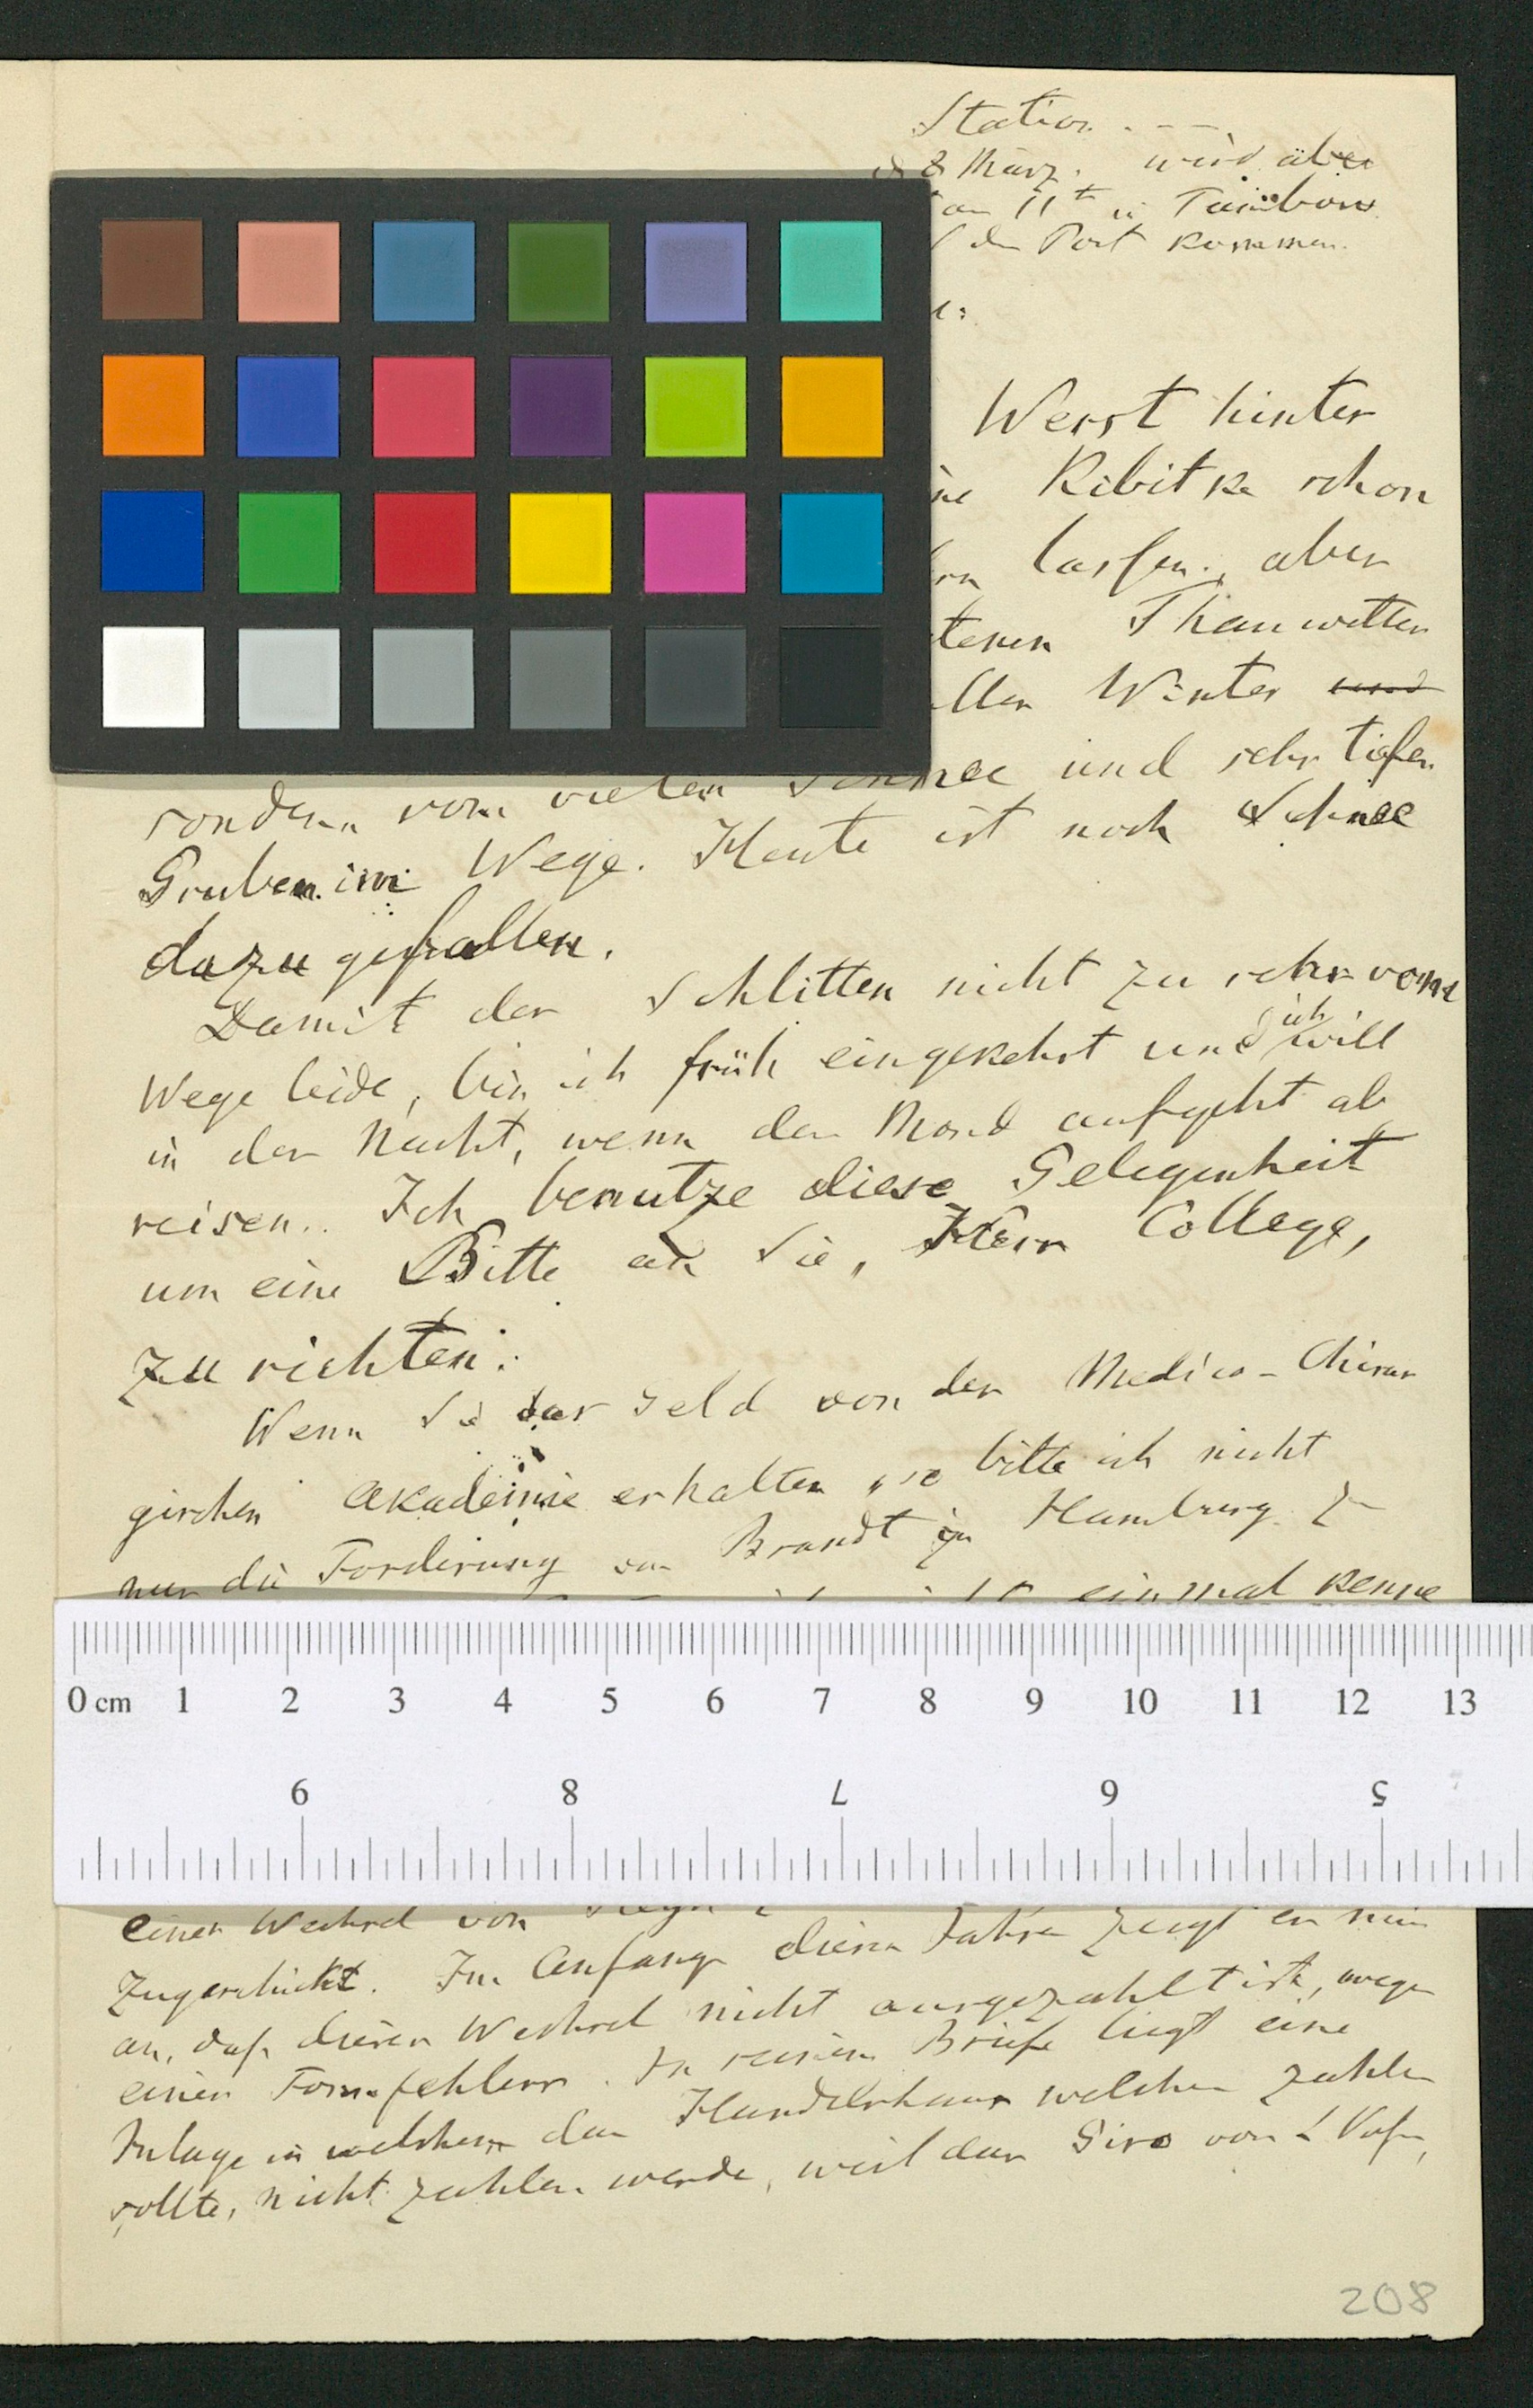 Station. —
d 8 März. wird aber
am 11t in Tambow
den Post kommen.
Werst hinter
Kibitke schon
lassen, aber
Thauwetter
Winter und
sondern vom vielen Schnee und sehr tiefen
Gruben im Wege. Heute ist noch Schnee
dazu gefallen.
Damit der Schlitten nicht zu sehr vom
ich
Wege leide, bin ich früh eingekehrt und will
in der Nacht, wenn der Mond aufgeht ab
reisen. Ich benutze diese Gelegenheit
um eine Bitte an Sie, Herr College,
zu richten:
Wenn Sie das Geld von der Medico-Chirur
gischen Akademie erhalten, so bitte ich nicht
nur die Forderung von Brandt in Hamburg zu
einmal kenne
0 cm 1 2 3 4 5 6 7 8 9 10 11 12 13
9 8 7 6 5
einen Wechsel von
zugeschickt. Im Anfange dieses Jahres zeigt er mir
an, dass dieser Wechsel nicht ausgezahlt ist, wegen
eines Formfehlers. In seinem Briefe liegt eine
Inlage in welcher das Handelshaus welches zahlen
sollte, nicht zahlen werde, weil das Giro von
208